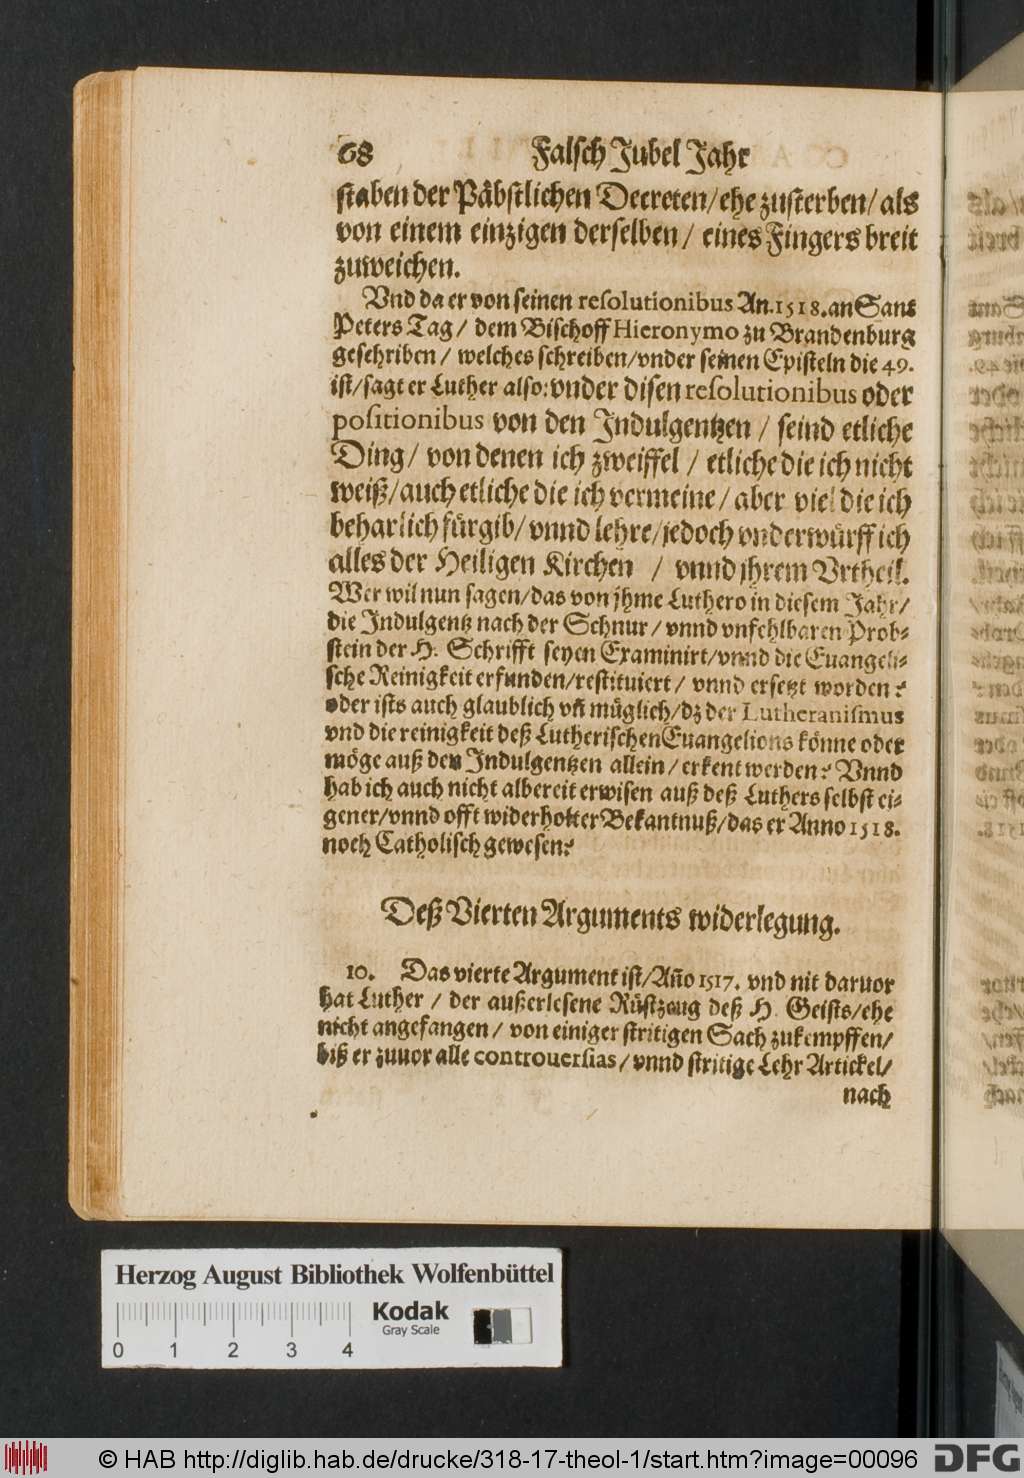 68 Falsch Jubel Jahr
staben der Päbstlichen Decreten/ ehe zusterben/ als
von einem einzigen derselben/ eines Fingers breit
zuweichen.
Vnd da er von seinen resolutionibus An. 1518. an Sant
Peters Tag/ dem Bischoff Hieronymo zu Brandenburg
geschriben/ welches schreiben/ vnder seinen Episteln die 49.
ist/ sagt er Luther also: vnder disen resolutionibus oder
positionibus von den Indulgentzen/ seind etliche
Ding/ von denen ich zweiffel/ etliche die ich nicht
weiß/ auch etliche die ich vermeine/ aber viel die ich
beharlich fürgib/ vnnd lehre/ jedoch vnderwürff ich
alles der Heiligen Kirchen / vnnd jhrem Vrtheil.
Wer wil nun sagen/ das von jhme Luthero in diesem Jahr/
die Indulgentz nach der Schnur/ vnnd vnfehlbaren Prob-
stein der H. Schrifft seyen Examinirt/ vnnd die Euangeli-
sche Reinigkeit erfunden/ restituiert/ vnnd ersetzt worden?
oder ists auch glaublich vñ müglich/ dz der Lutheranismus
vnd die reinigkeit deß Lutherischen Euangelions könne oder
möge auß den Indulgentzen allein/ erkent werden? Vnnd
hab ich auch nicht albereit erwisen auß deß Luthers selbst ei-
gener/ vnnd offt widerholter Bekantnuß/ das er Anno 1518.
noch Catholisch gewesen?
Deß Vierten Arguments widerlegung.
10. Das vierte Argument ist/ Año 1517. vnd nit daruor
hat Luther/ der außerlesene Rüstzeug deß H. Geists/ ehe
nicht angefangen/ von einiger stritigen Sach zukempffen/
biß er zuuor alle controuersias/ vnnd stritige Lehr Artickel/
nach
Herzog August Bibliothek Wolfenbüttel
Kodak
Gray Scale
0 1 2 3 4
© HAB http://diglib.hab.de/drucke/318-17-theol-1/start.htm?image=00096 DFG